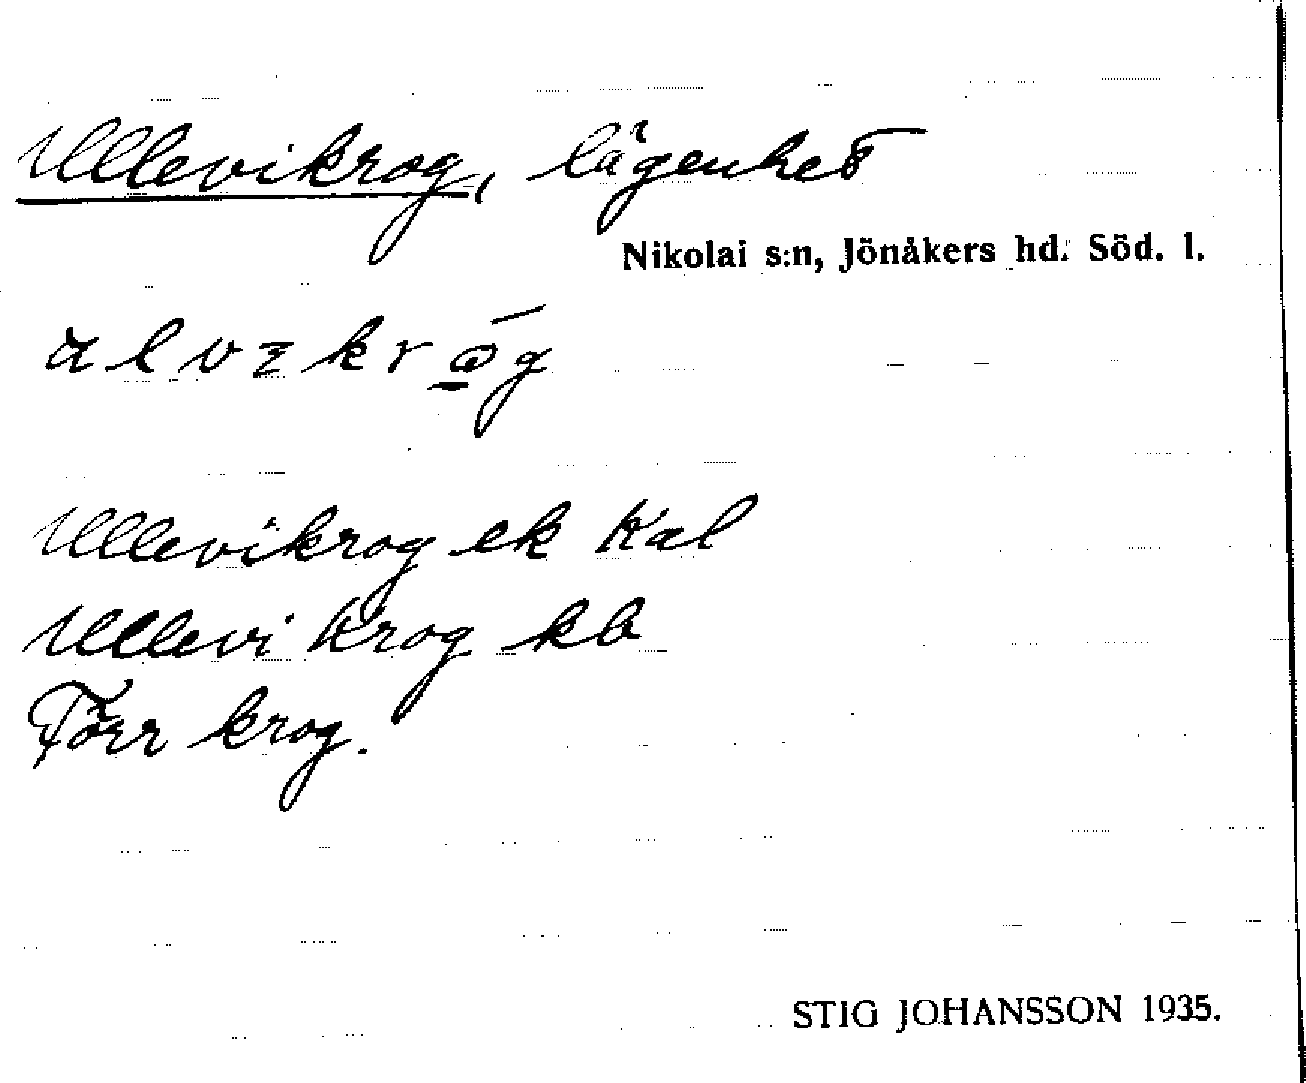 Ullevikrog, lägenhet
Nikolai s:n, Jönåkers hd. Söd. l.
Ullevikrog ek Kal
Ullevi Krog kb
Förr krog.
STIG JOHANSSON 1935.